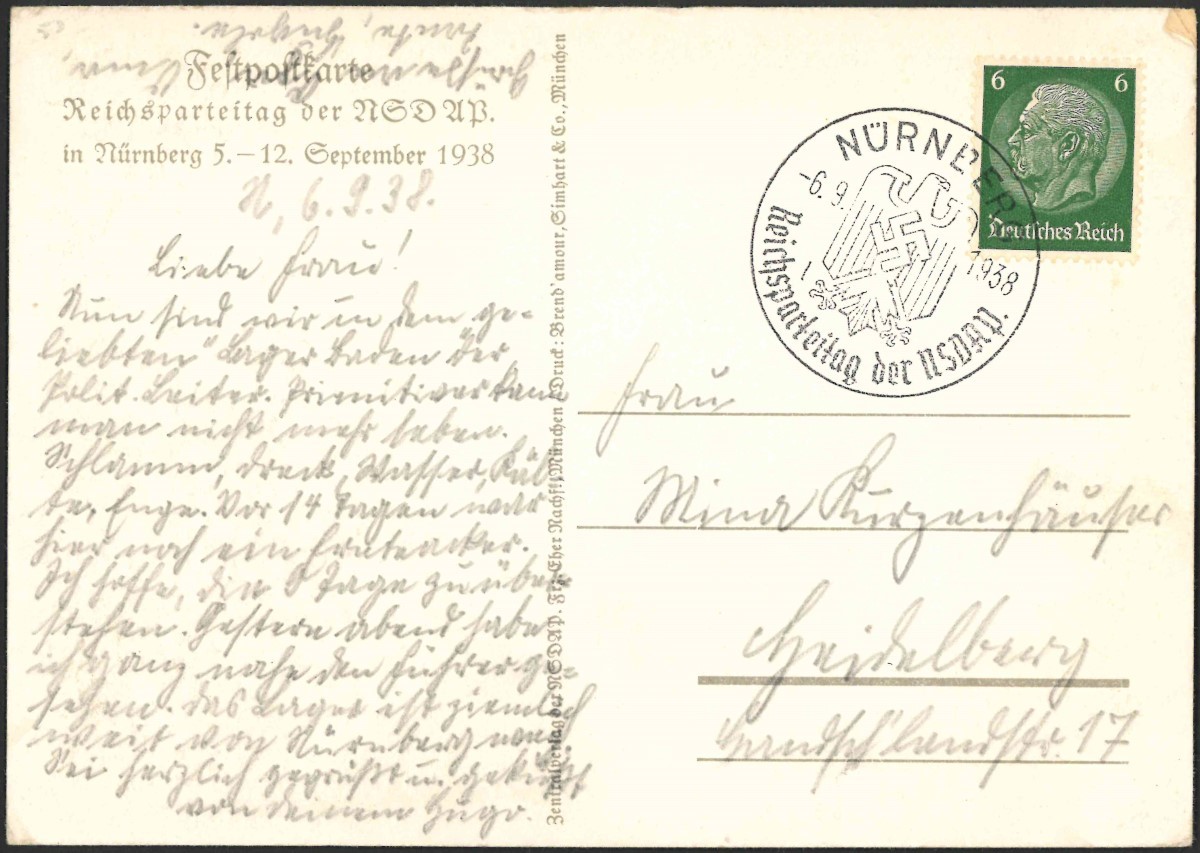 Festpostkarte
Reichsparteitag der NSDAP.
in Nürnberg 5.–12. September 1938
N, 6. 9. 38.
Liebe Frau!
Nun sind wir in dem „ge-
liebten" Lager Baden der
Polit. Leiter. Primitiver kann
man nicht mehr leben.
Schlamm, Dreck, Wasser, Käl-
te, Enge. Vor 14 Tagen war
hier noch ein Ernteacker.
Ich hoffe, die 8 Tage zu über-
stehen. Gestern abend habe
ich ganz nahe den Führer ge-
sehen. Das Lager ist ziemlich
weit von Nürnberg weg.
Sei herzlich gegrüßt u. geküßt
von deinem Hugo.
Zentralverlag der NSDAP. Frz. Eher Nachf., München / Druck: Brend'amour, Simhart & Co., München
6 6
Deutsches Reich
NÜRNBERG
-6. 9. 1938
1
Reichsparteitag der NSDAP.
Frau
Mina Kurzenhäuser
Heidelberg
17